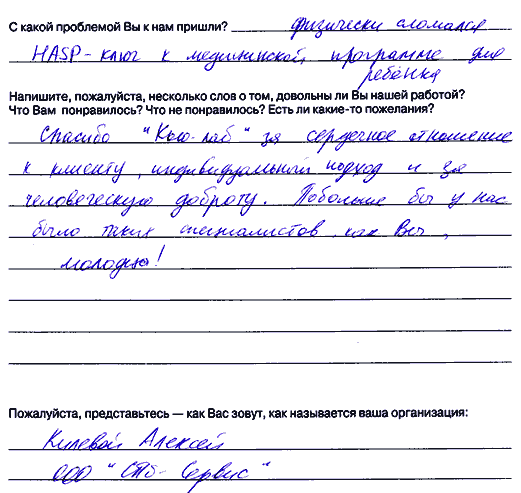 С какой проблемой Вы к нам пришли? физически сломался
HASP-ключ к медицинской программе для
ребёнка
Напишите, пожалуйста, несколько слов о том, довольны ли Вы нашей работой?
Что Вам понравилось? Что не понравилось? Есть ли какие-то пожелания?
Спасибо "Кью-лаб" за сердечное отношение
к клиенту, индивидуальный подход и за
человеческую доброту. Побольше бы у нас
было таких специалистов, как Вы,
молодцы!
Пожалуйста, представьтесь — как Вас зовут, как называется ваша организация:
Килевой Алексей
ООО "СПб-Сервис"